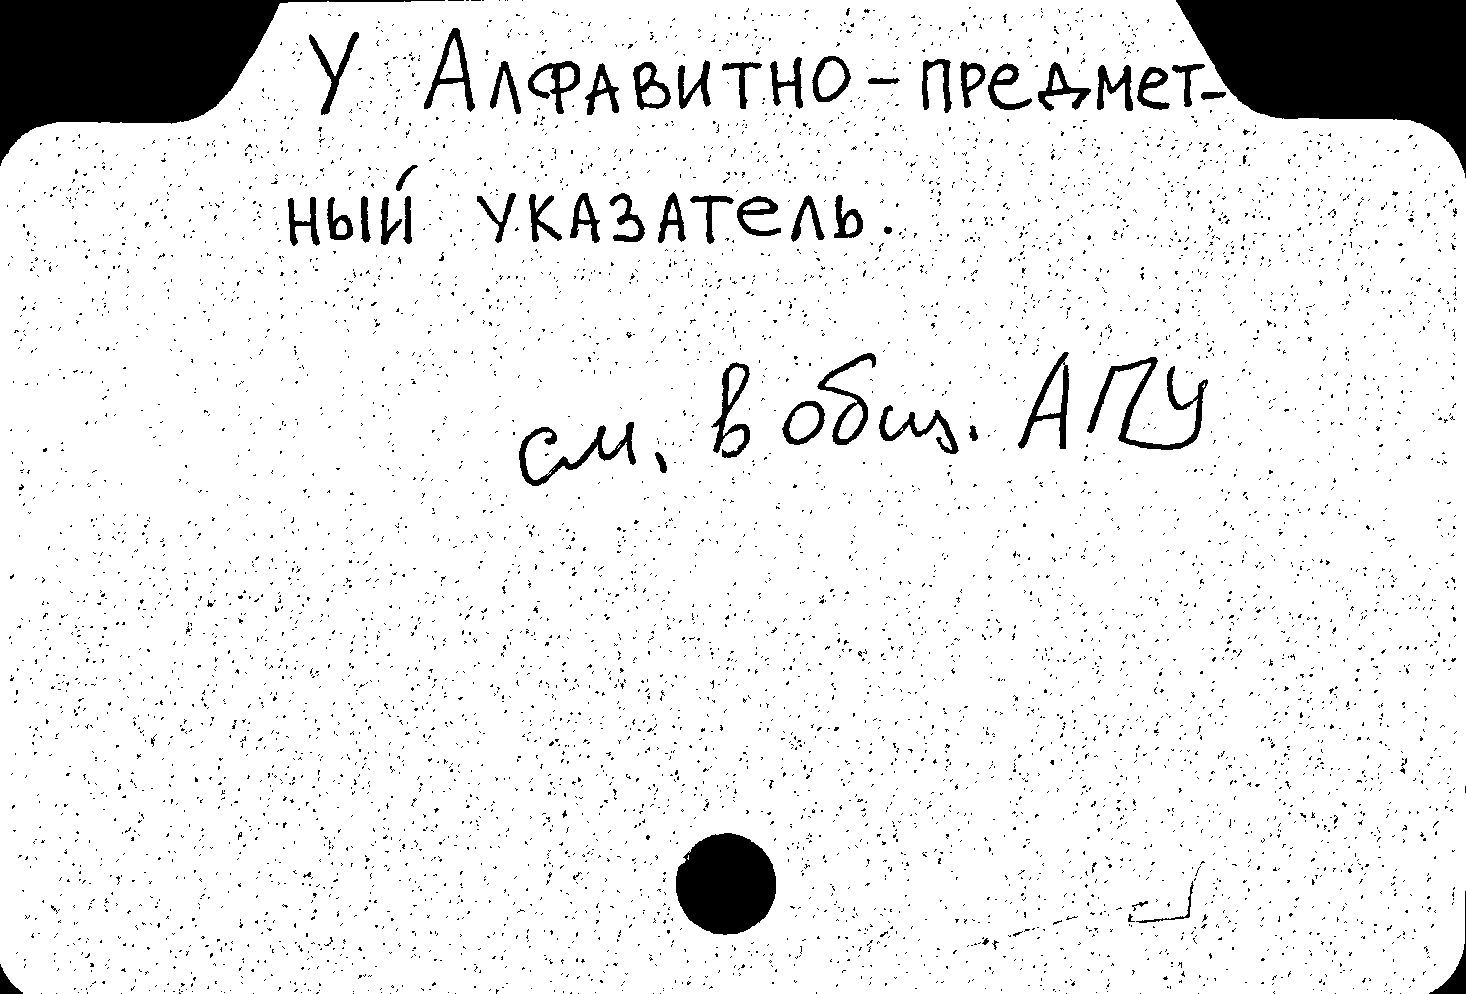 У Алфавитно-предмет-
ный указатель.
см. в общ. АПУ